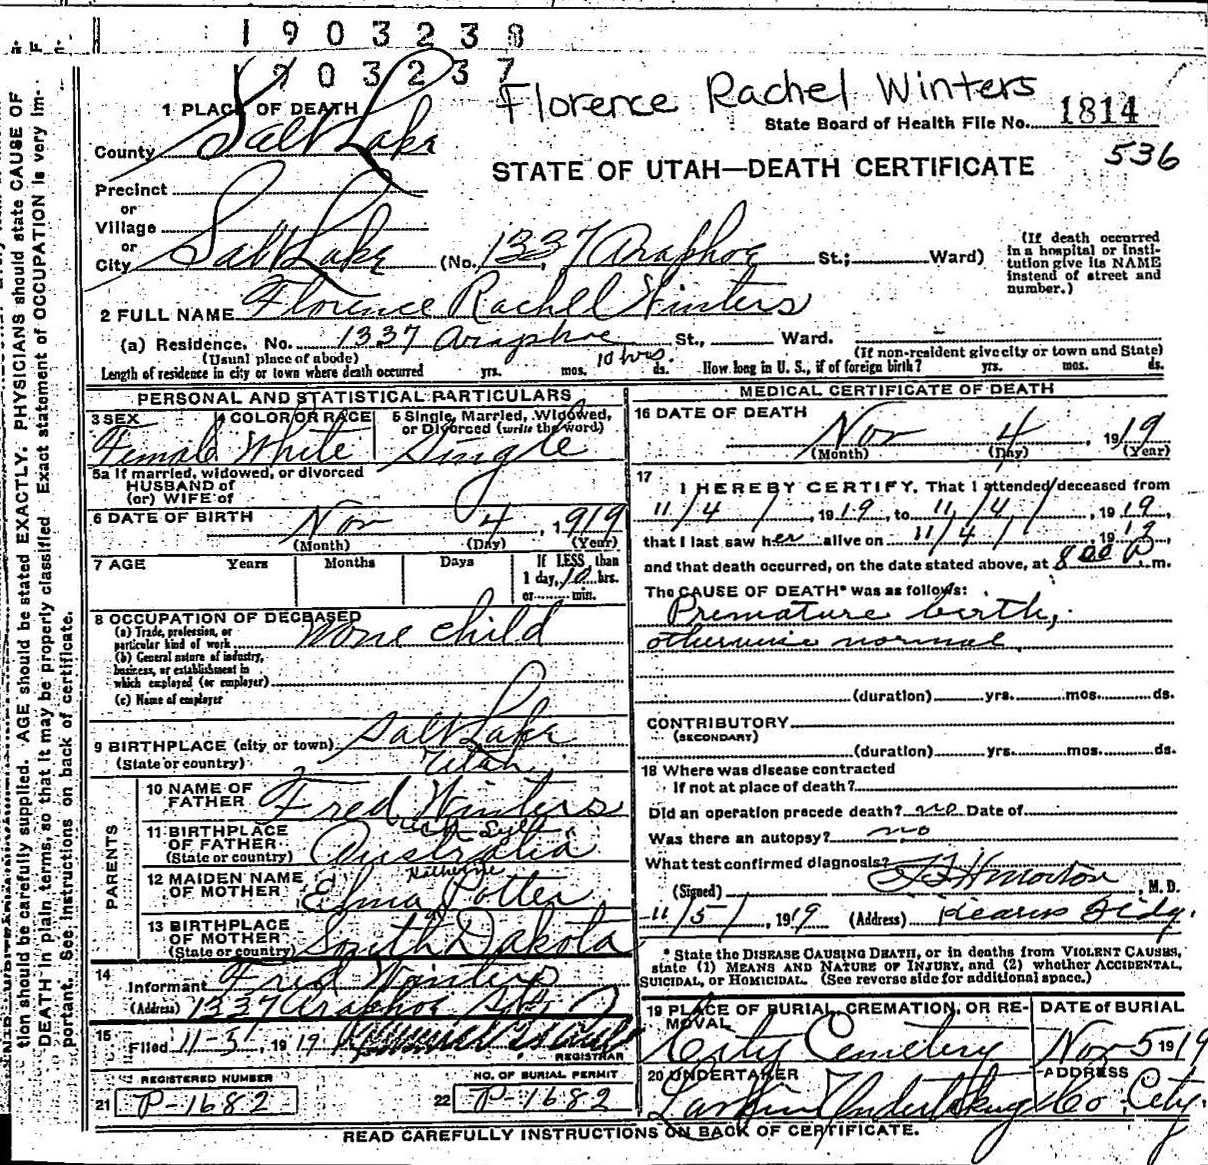 1903238
1903237
Florence Rachel Winters
1 PLACE OF DEATH
State Board of Health File No. 1814
County Salt Lake
536
STATE OF UTAH—DEATH CERTIFICATE
Precinct
or
Village
or
City Salt Lake (No. 1337 Araphoe St.; Ward)
(If death occurred in a hospital or institution give its NAME instead of street and number.)
2 FULL NAME Florence Rachel Winters
(a) Residence. No. 1337 Araphoe St., Ward.
(Usual place of abode) (If non-resident give city or town and State)
Length of residence in city or town where death occurred yrs. mos. 10 hrs. ds. How long in U. S., if of foreign birth? yrs. mos. ds.
PERSONAL AND STATISTICAL PARTICULARS
3 SEX 4 COLOR OR RACE 5 Single, Married, Widowed, or Divorced (write the word)
Female White Single
5a If married, widowed, or divorced
HUSBAND of
(or) WIFE of
6 DATE OF BIRTH Nov 4, 1919
(Month) (Day) (Year)
7 AGE Years Months Days If LESS than
1 day, 10 hrs.
or min.
8 OCCUPATION OF DECEASED
(a) Trade, profession, or
particular kind of work None child
(b) General nature of industry,
business, or establishment in
which employed (or employer)
(c) Name of employer
9 BIRTHPLACE (city or town) Salt Lake
(State or country) Utah
PARENTS
10 NAME OF
FATHER Fred Winters
11 BIRTHPLACE
OF FATHER
(State or country) Australia
12 MAIDEN NAME
OF MOTHER Elma Katherine Potter
13 BIRTHPLACE
OF MOTHER
(State or country) South Dakota
14
Informant Fred Winters
(Address) 1337 Araphoe
15 Filed 11-5, 1919
REGISTRAR
REGISTERED NUMBER NO. OF BURIAL PERMIT
21 P-1682 22 P-1682
MEDICAL CERTIFICATE OF DEATH
16 DATE OF DEATH
Nov 4, 1919
(Month) (Day) (Year)
17 I HEREBY CERTIFY, That I attended deceased from
11/4/, 1919, to 11/4/, 1919,
that I last saw her alive on 11/4/, 1919
and that death occurred, on the date stated above, at 8 00 P m.
The CAUSE OF DEATH* was as follows:
Premature birth,
otherwise normal
(duration) yrs. mos. ds.
CONTRIBUTORY
(SECONDARY)
(duration) yrs. mos. ds.
18 Where was disease contracted
If not at place of death?
Did an operation precede death? no Date of
Was there an autopsy? no
What test confirmed diagnosis?
(Signed) Morton, M. D.
11/5/, 1919 (Address) Kearns Bldg.
* State the DISEASE CAUSING DEATH, or in deaths from VIOLENT CAUSES,
state (1) MEANS AND NATURE OF INJURY, and (2) whether ACCIDENTAL,
SUICIDAL, or HOMICIDAL. (See reverse side for additional space.)
19 PLACE OF BURIAL, CREMATION, OR RE-
MOVAL
City Cemetery
DATE of BURIAL
Nov 5 1919
20 UNDERTAKER
Larkin Undertaking Co
ADDRESS
City.
READ CAREFULLY INSTRUCTIONS ON BACK OF CERTIFICATE.
tion should be carefully supplied. AGE should be stated EXACTLY. PHYSICIANS should state CAUSE OF
DEATH in plain terms, so that it may be properly classified. Exact statement of OCCUPATION is very im-
portant. See instructions on back of certificate.